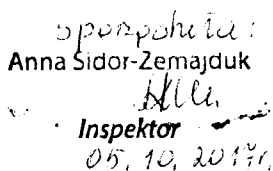 sporządziła:
Anna Sidor-Zemajduk
Inspektor
05.10.2017r.